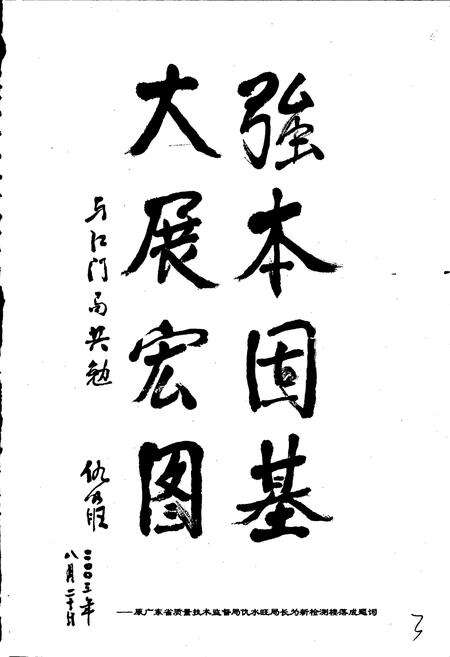 強本固基
大展宏图
与江门局共勉
仇水旺
二〇〇三年
八月二十日
——原广东省质量技术监督局仇水旺局长为新检测楼落成题词
3